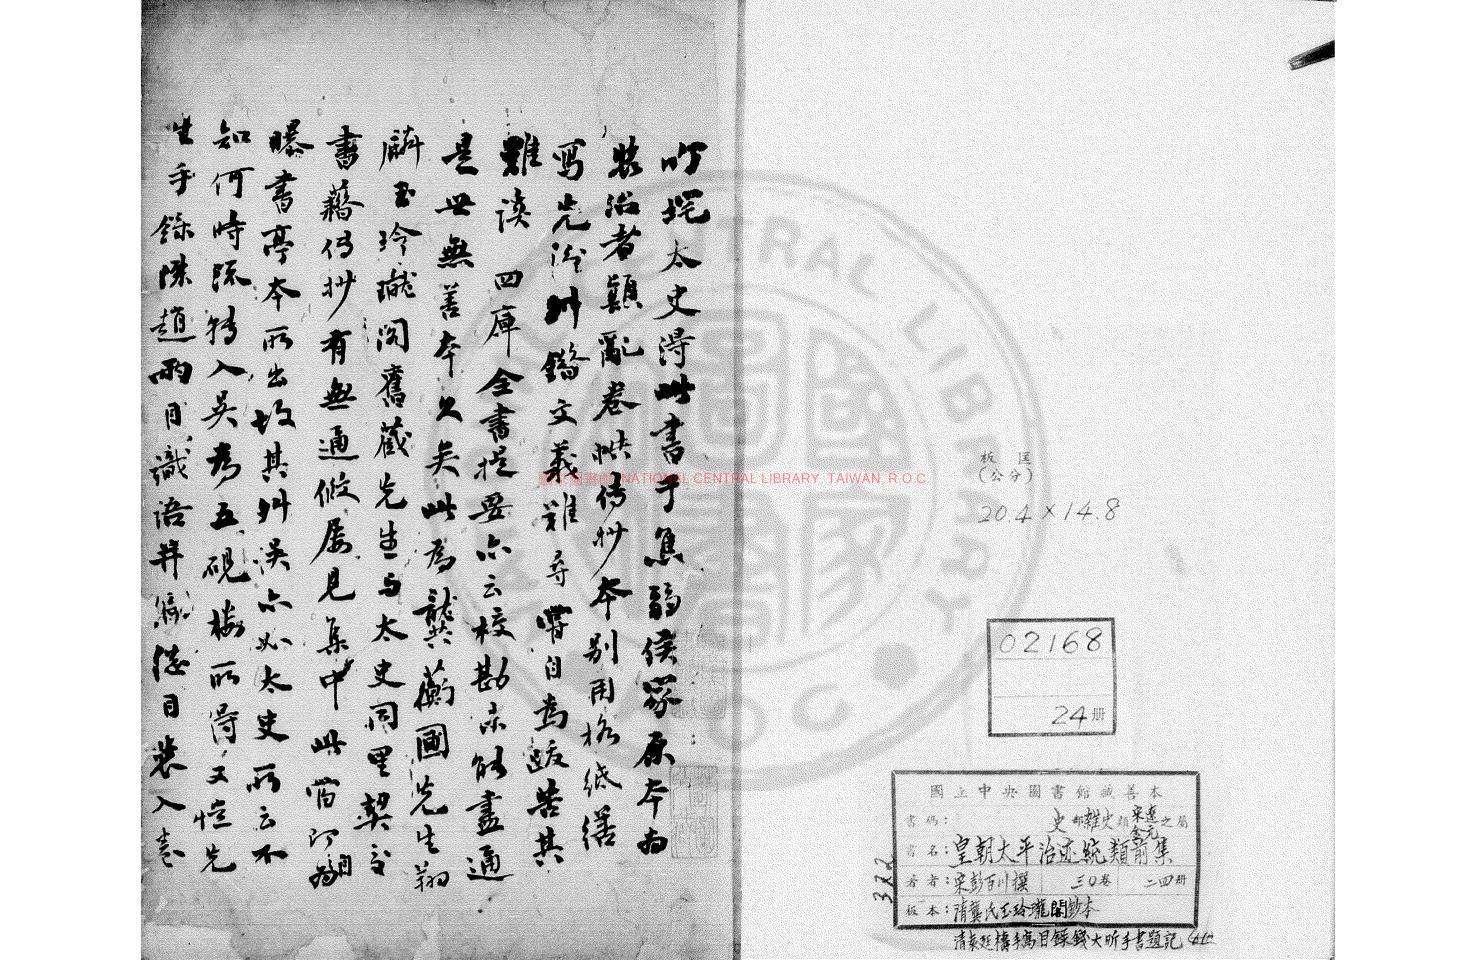 竹垞太史淂此書于焦弱侯家原本為
裝治者顛亂卷帙傳抄本别用格紙繕
寫先後舛錯文義難尋嘗自為跋苦其
難讀 四庫全書提要亦云校勘未能盡通
是世無善本久矣此為龔蘅圃先生翔
麟玉玲瓏閣舊藏先生与太史同里契
書藉傳抄有無通假屢見集中此當即
曝書亭本所出故其舛誤亦如太史所云不
知何時版轉入吳為五硯樓所淂又愷先
生手錄陳趙兩目識語并編總目裝入卷
國立中央圖書館 NATIONAL CENTRAL LIBRARY, TAIWAN, R.O.C
板 匡
(公分)
20.4×14.8
02168
24册
國立中央圖書館藏善本
書碼:史部雜史類宋遼金元之屬
書名:皇朝太平治迹統類前集
著者:宋彭百川撰 三〇卷 二四册
板本:清龔氏玉玲瓏閣鈔本
清袁廷檮手寫目錄錢大昕手書題記